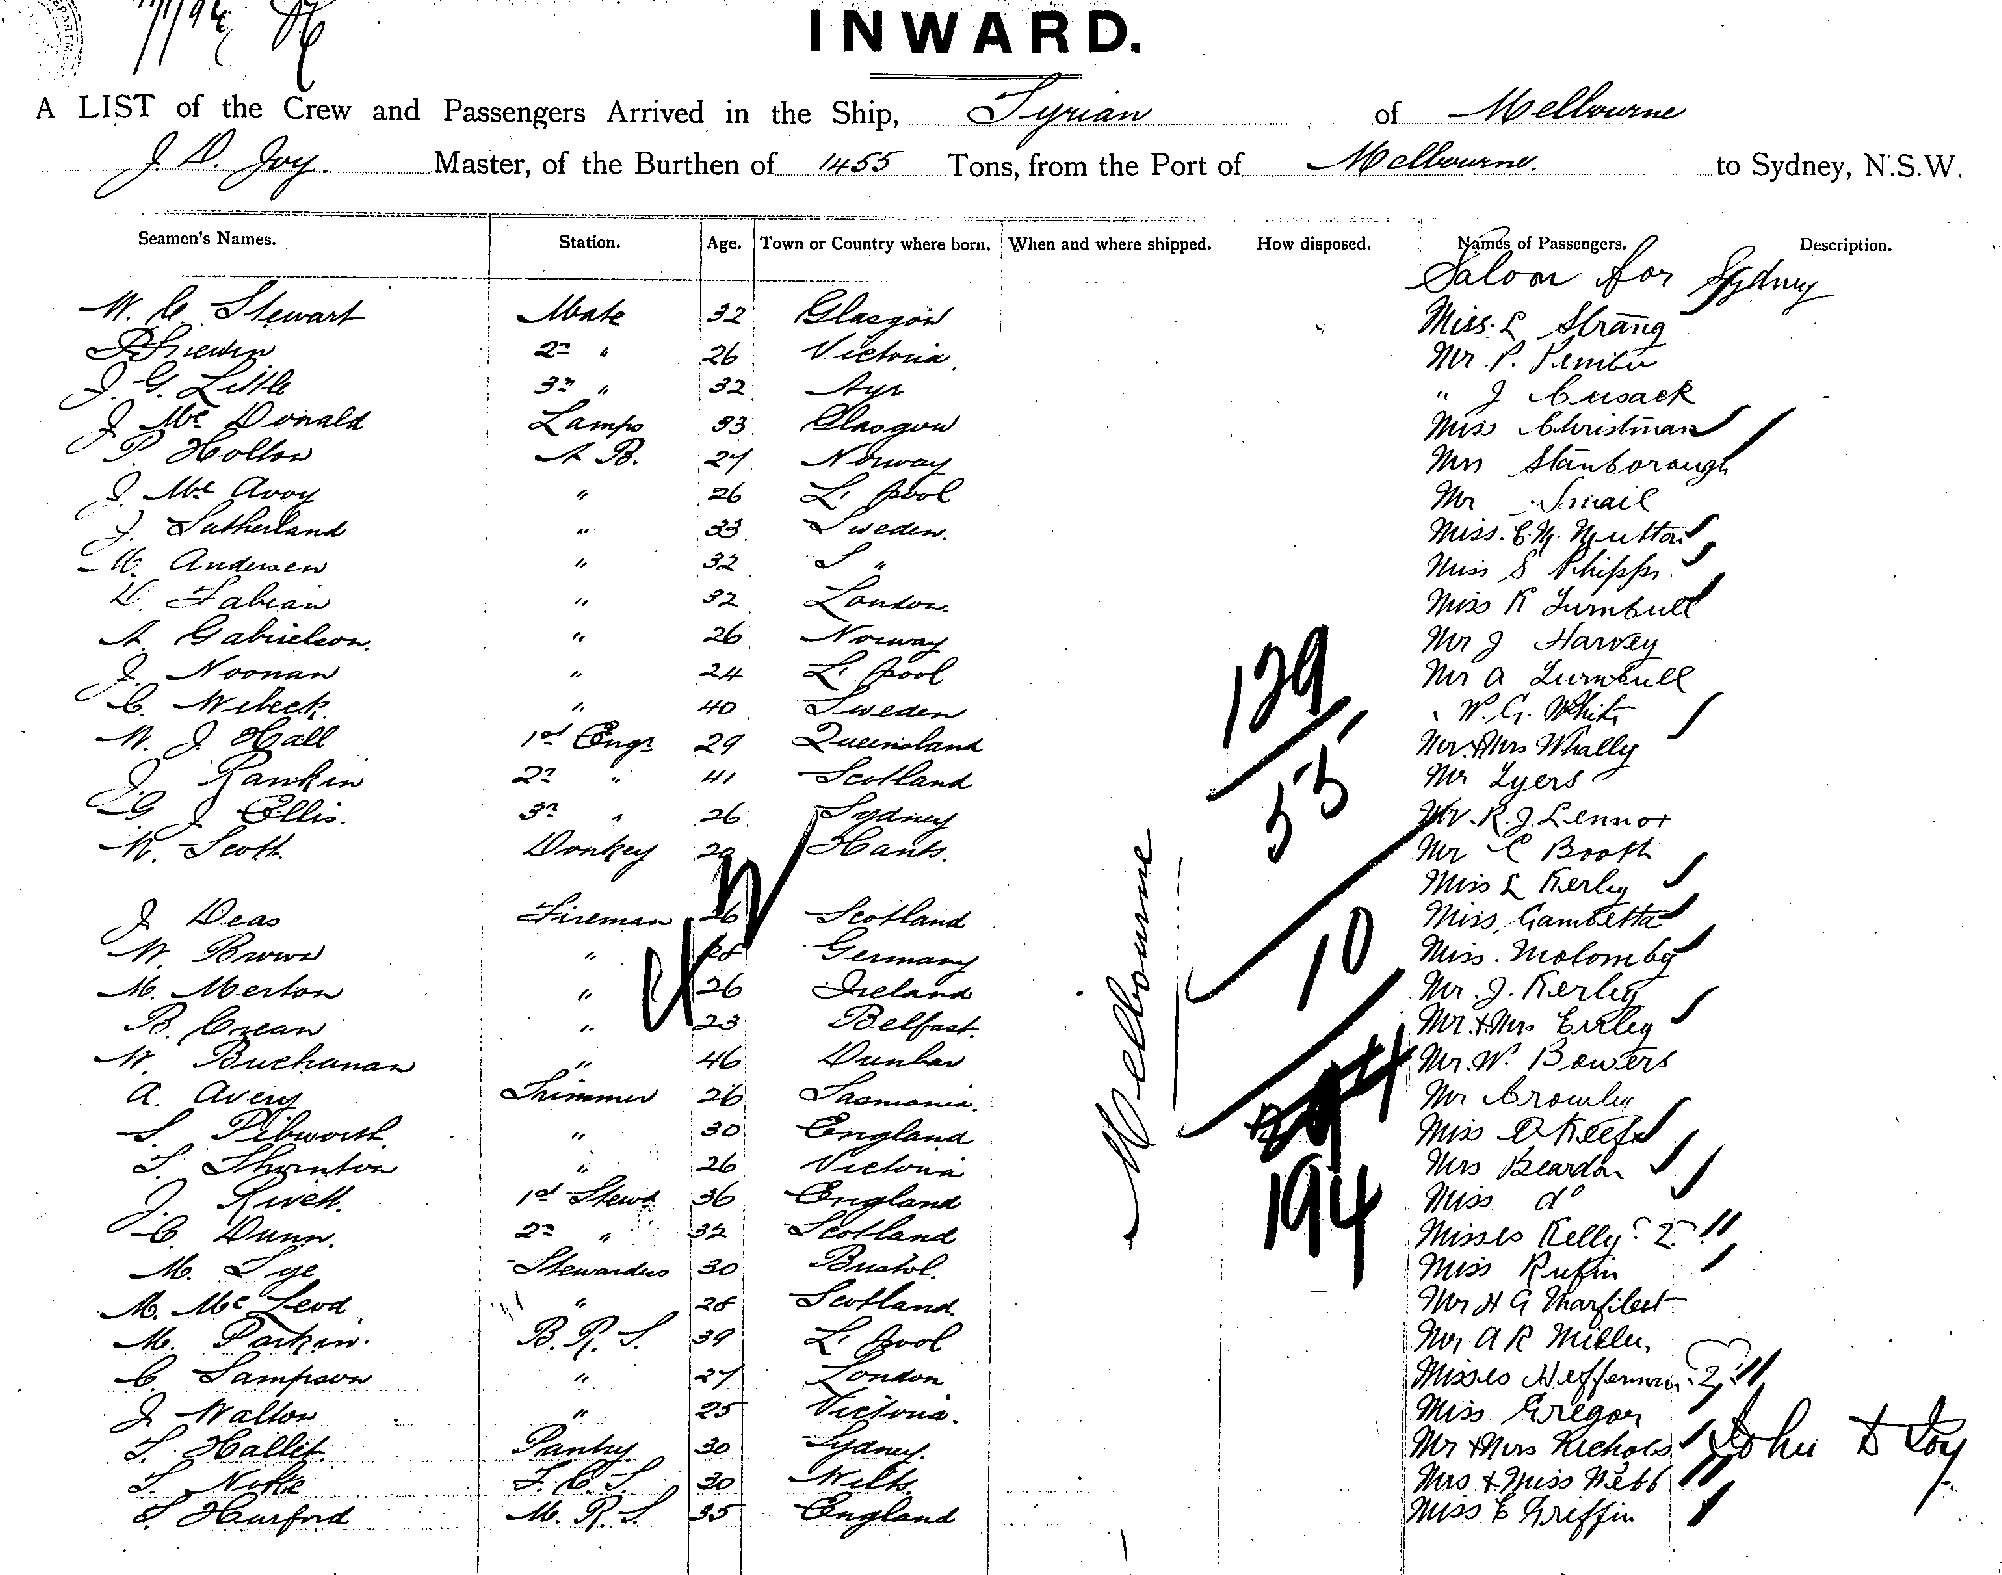 INWARD.
A LIST of the Crew and Passengers Arrived in the Ship, Tyrian of Melbourne
J. D. Joy. Master, of the Burthen of 1455 Tons, from the Port of Melbourne. to Sydney, N.S.W.
Seamen's Names. Station. Age. Town or Country where born. When and where shipped. How disposed. Names of Passengers. Description.
Saloon for Sydney
W. C. Stewart Mate 32 Glasgow Miss. L Strang
2nd " 26 Victoria. Mr P.
J. G. Little 3rd " 32 Ayr " J Cusack
J Mc Donald Lamps 33 Glasgow Miss Christman
P Holton A B. 27 Norway Mrs Stanborough
J. Mc Avoy " 26 L' pool Mr Smail
J. Sutherland " 33 Sweden. Miss. E.M. Mutton
Andersen " 32 S " Miss S Phipps.
Fabian " 32 London. Miss K Turnbull
A. Gabrielson. " 26 Norway Mr J Harvey
J. Noonan " 24 L' pool Mr A Turnbull
C. Wibeck. " 40 Sweden " W. G. White
W. J. Hall 1st Engr 29 Queensland Mr & Mrs Whally
J. Rankin 2nd " 41 Scotland Mr Lyers
G J Ellis. 3rd " 26 Sydney Mr. R. J. Lennox
Scott Donkey 29 Hants. Mr C Booth
Miss L Kerley
J Deas Fireman 26 Scotland Miss. Gambetta
W. Brown " 28 Germany Miss. Molomby
M. Merton " 26 Ireland Mr. J. Kerley
B. Crean " 23 Belfast. Mr. & Mrs Exley
W. Buchanan " 46 Dunbar Mr. W. Bowers
A. Avery Trimmer 26 Tasmania. Mr Crowley
S. Pibworth. " 30 England Miss O'Keefe
T. Thornton " 26 Victoria Mrs Beardon
J. Rivett. 1st Stewd 36 England Miss do
C. Dunn. 2nd " 32 Scotland Misses Kelly (2)
M. Lye Stewardess 30 Bristol. Miss Rufin
M. Mc Leod " 28 Scotland. Mr H G
M. Parkin. B. R. S. 39 L' pool Mr A R Miller.
C. Sampson " 27 London Misses Heffernan (2)
J. Walton " 25 Victoria. Miss Gregor
T. Hallet Pantry. 30 Sydney. Mr & Mrs Nichols.
30 Wilts. Mrs & Miss Webb
T Hurford M. R. S. 35 England Miss E Griffin
Melbourne
129
55
10
194
John D Joy